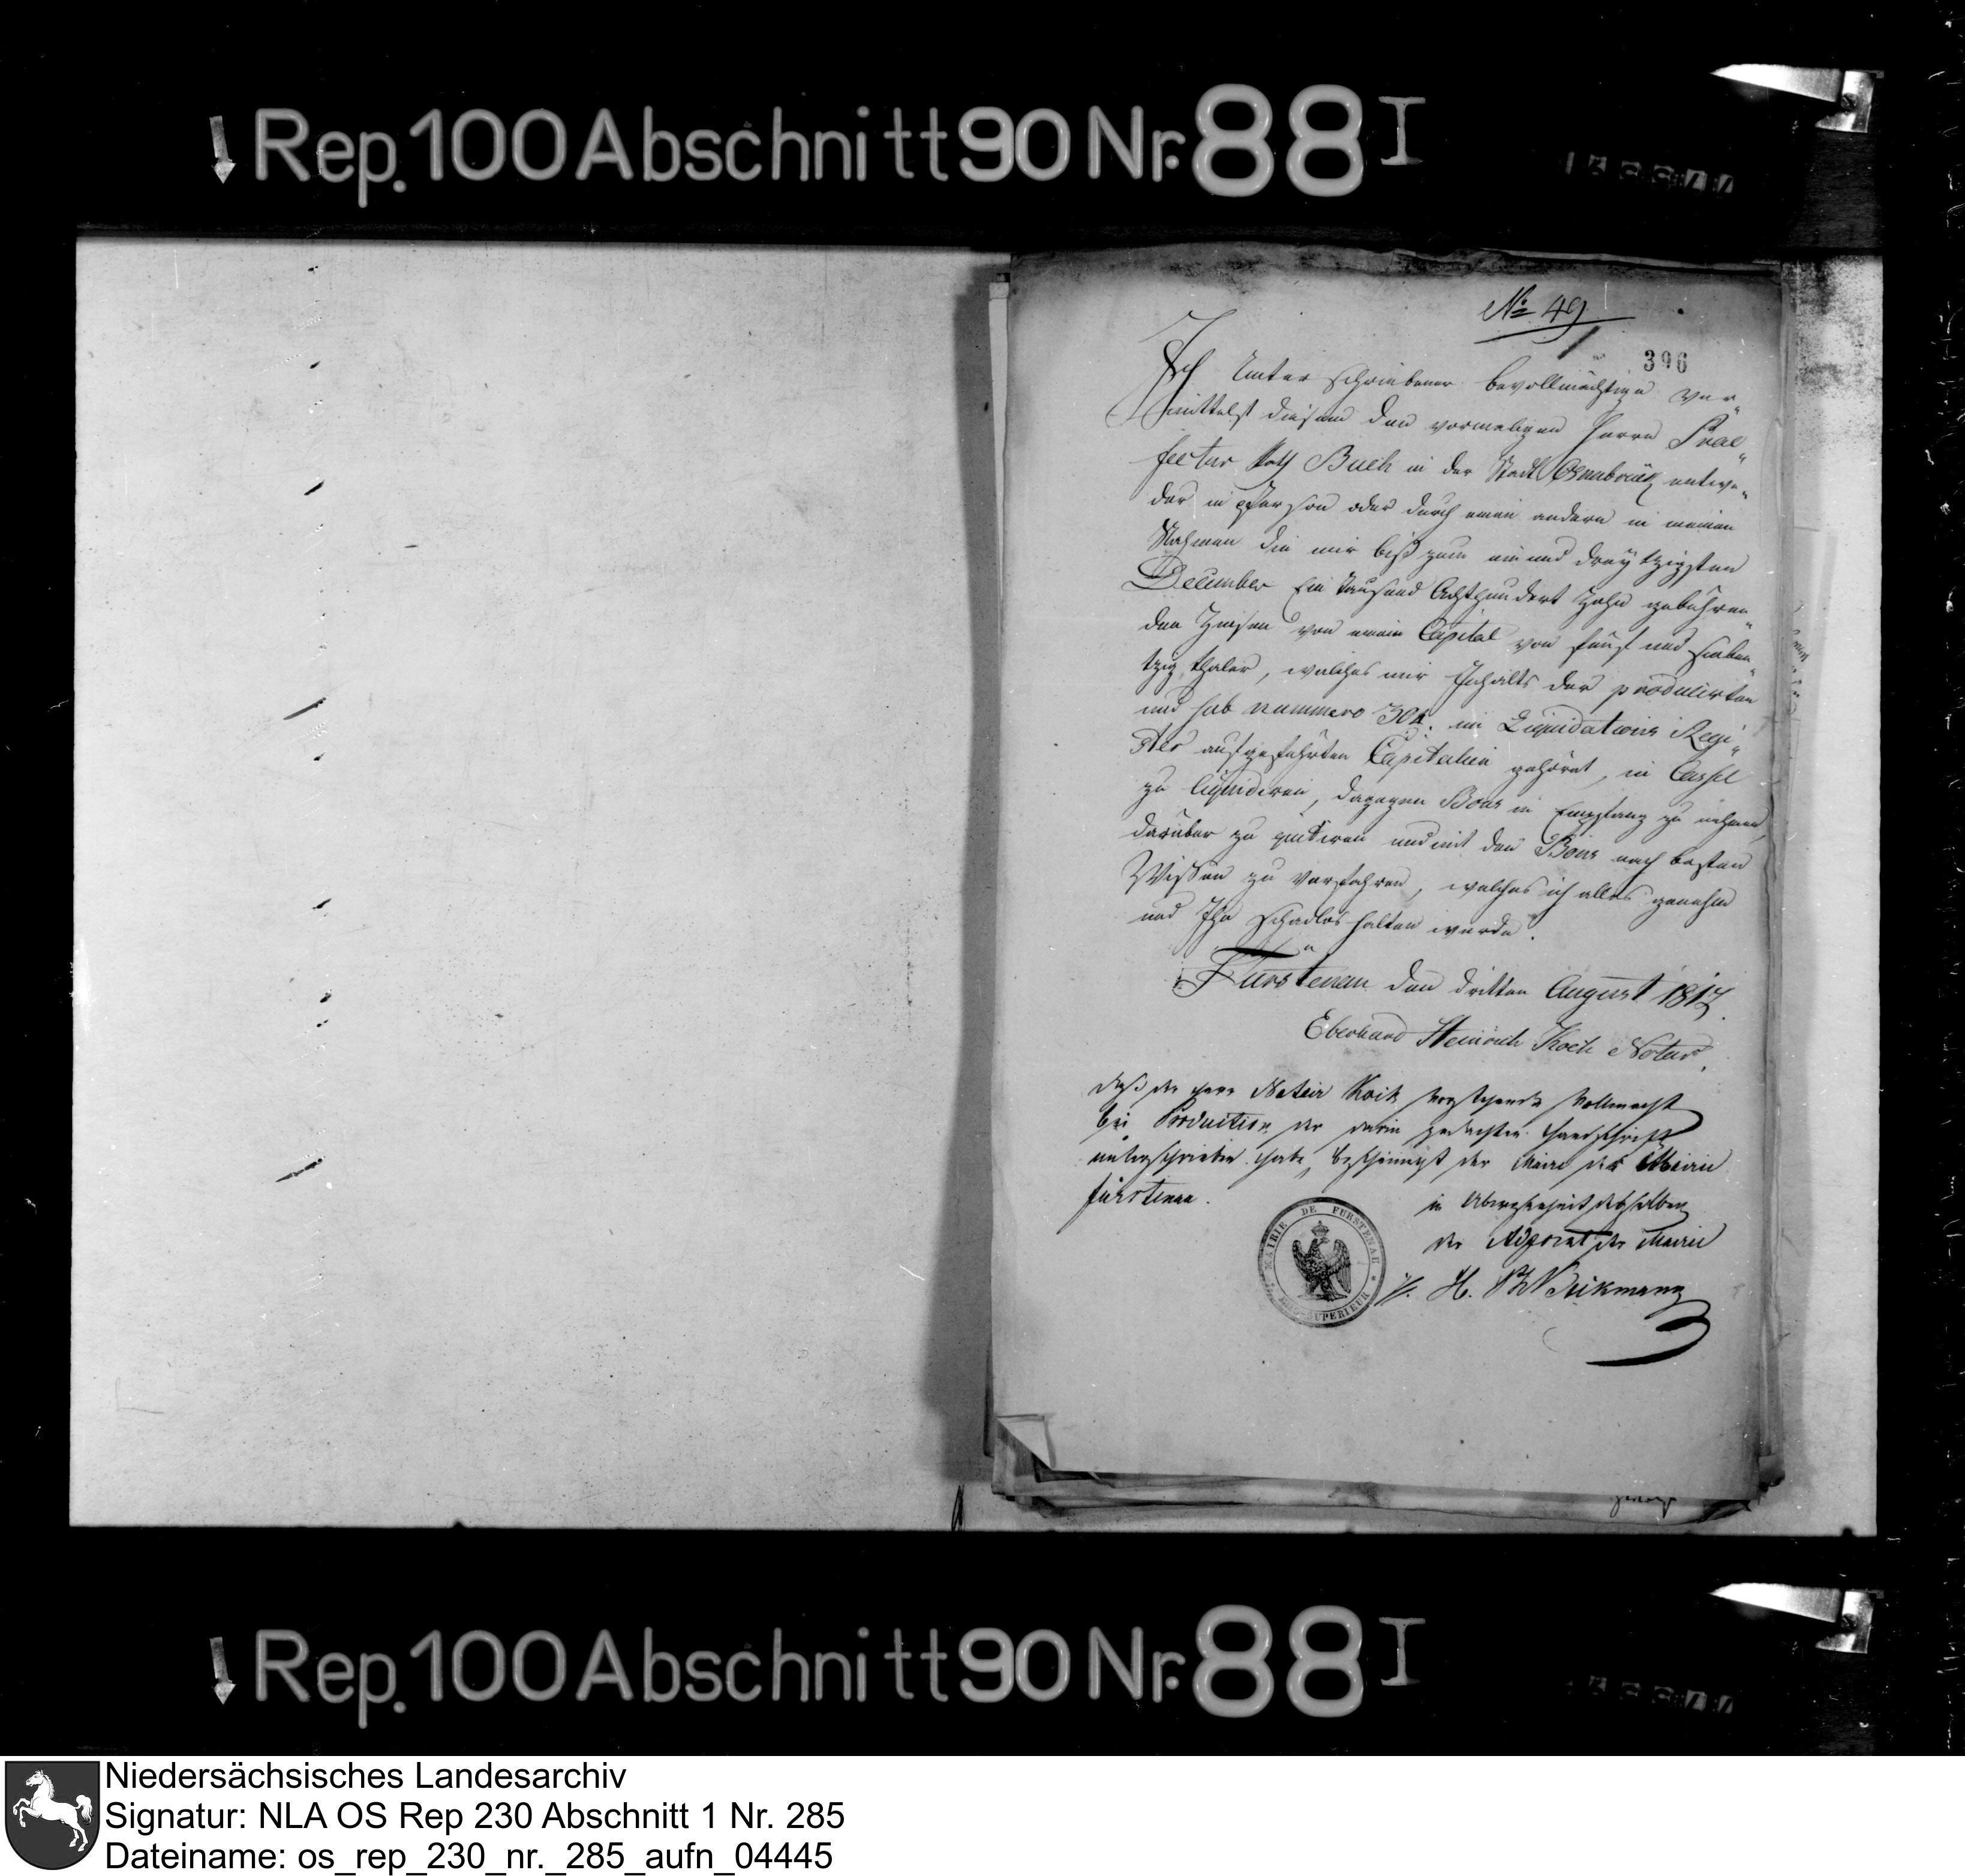 Rep. 100 Abschnitt 90 Nr. 88 I
No 49
396
Ich Unterschriebener bevollmächtige ver„
mittelst diesem den vormaligen Herrn Prae„
fectur Rath Buch in der Stadt Osnabrück entwe„
der in Person oder durch einen andern in meinen
Nahmen die mir biß zum ein und dreytzigsten
December Ein tausend Achthundert Zehn gebühren„
den Zinsen von einem Capital von fünf und sieben„
tzig thaler, welches mir Inhalts der producirten
und sub nummero 304. im Liquidations Regi„
ster aufgeführten Capitalien gehöret, in Cassel
zu liquidiren, dagegen Bons in Empfang zu nehmen,
darüber zu quitiren und mit den Bons nach besten
Wissen zu verfahren, welches ich alles genehm
und Ihn schadlos halten werde.
Fürstenau den dritten August 1812.
Eberhard Heinrich Koch Notar.
daß der Herr Notair Koch vorstehende Vollmacht
bei Production der darin gedachten Handschrift
unterschrieben habe, bescheinigt der Maire der Mairie
Fürstenau.
in Abwesenheit desselben
der Adjoint der Mairie
H.
MAIRIE DE FURSTENAU
EMS-SUPERIEUR
Rep. 100 Abschnitt 90 Nr. 88 I
Niedersächsisches Landesarchiv
Signatur: NLA OS Rep 230 Abschnitt 1 Nr. 285
Dateiname: os_rep_230_nr._285_aufn_04445